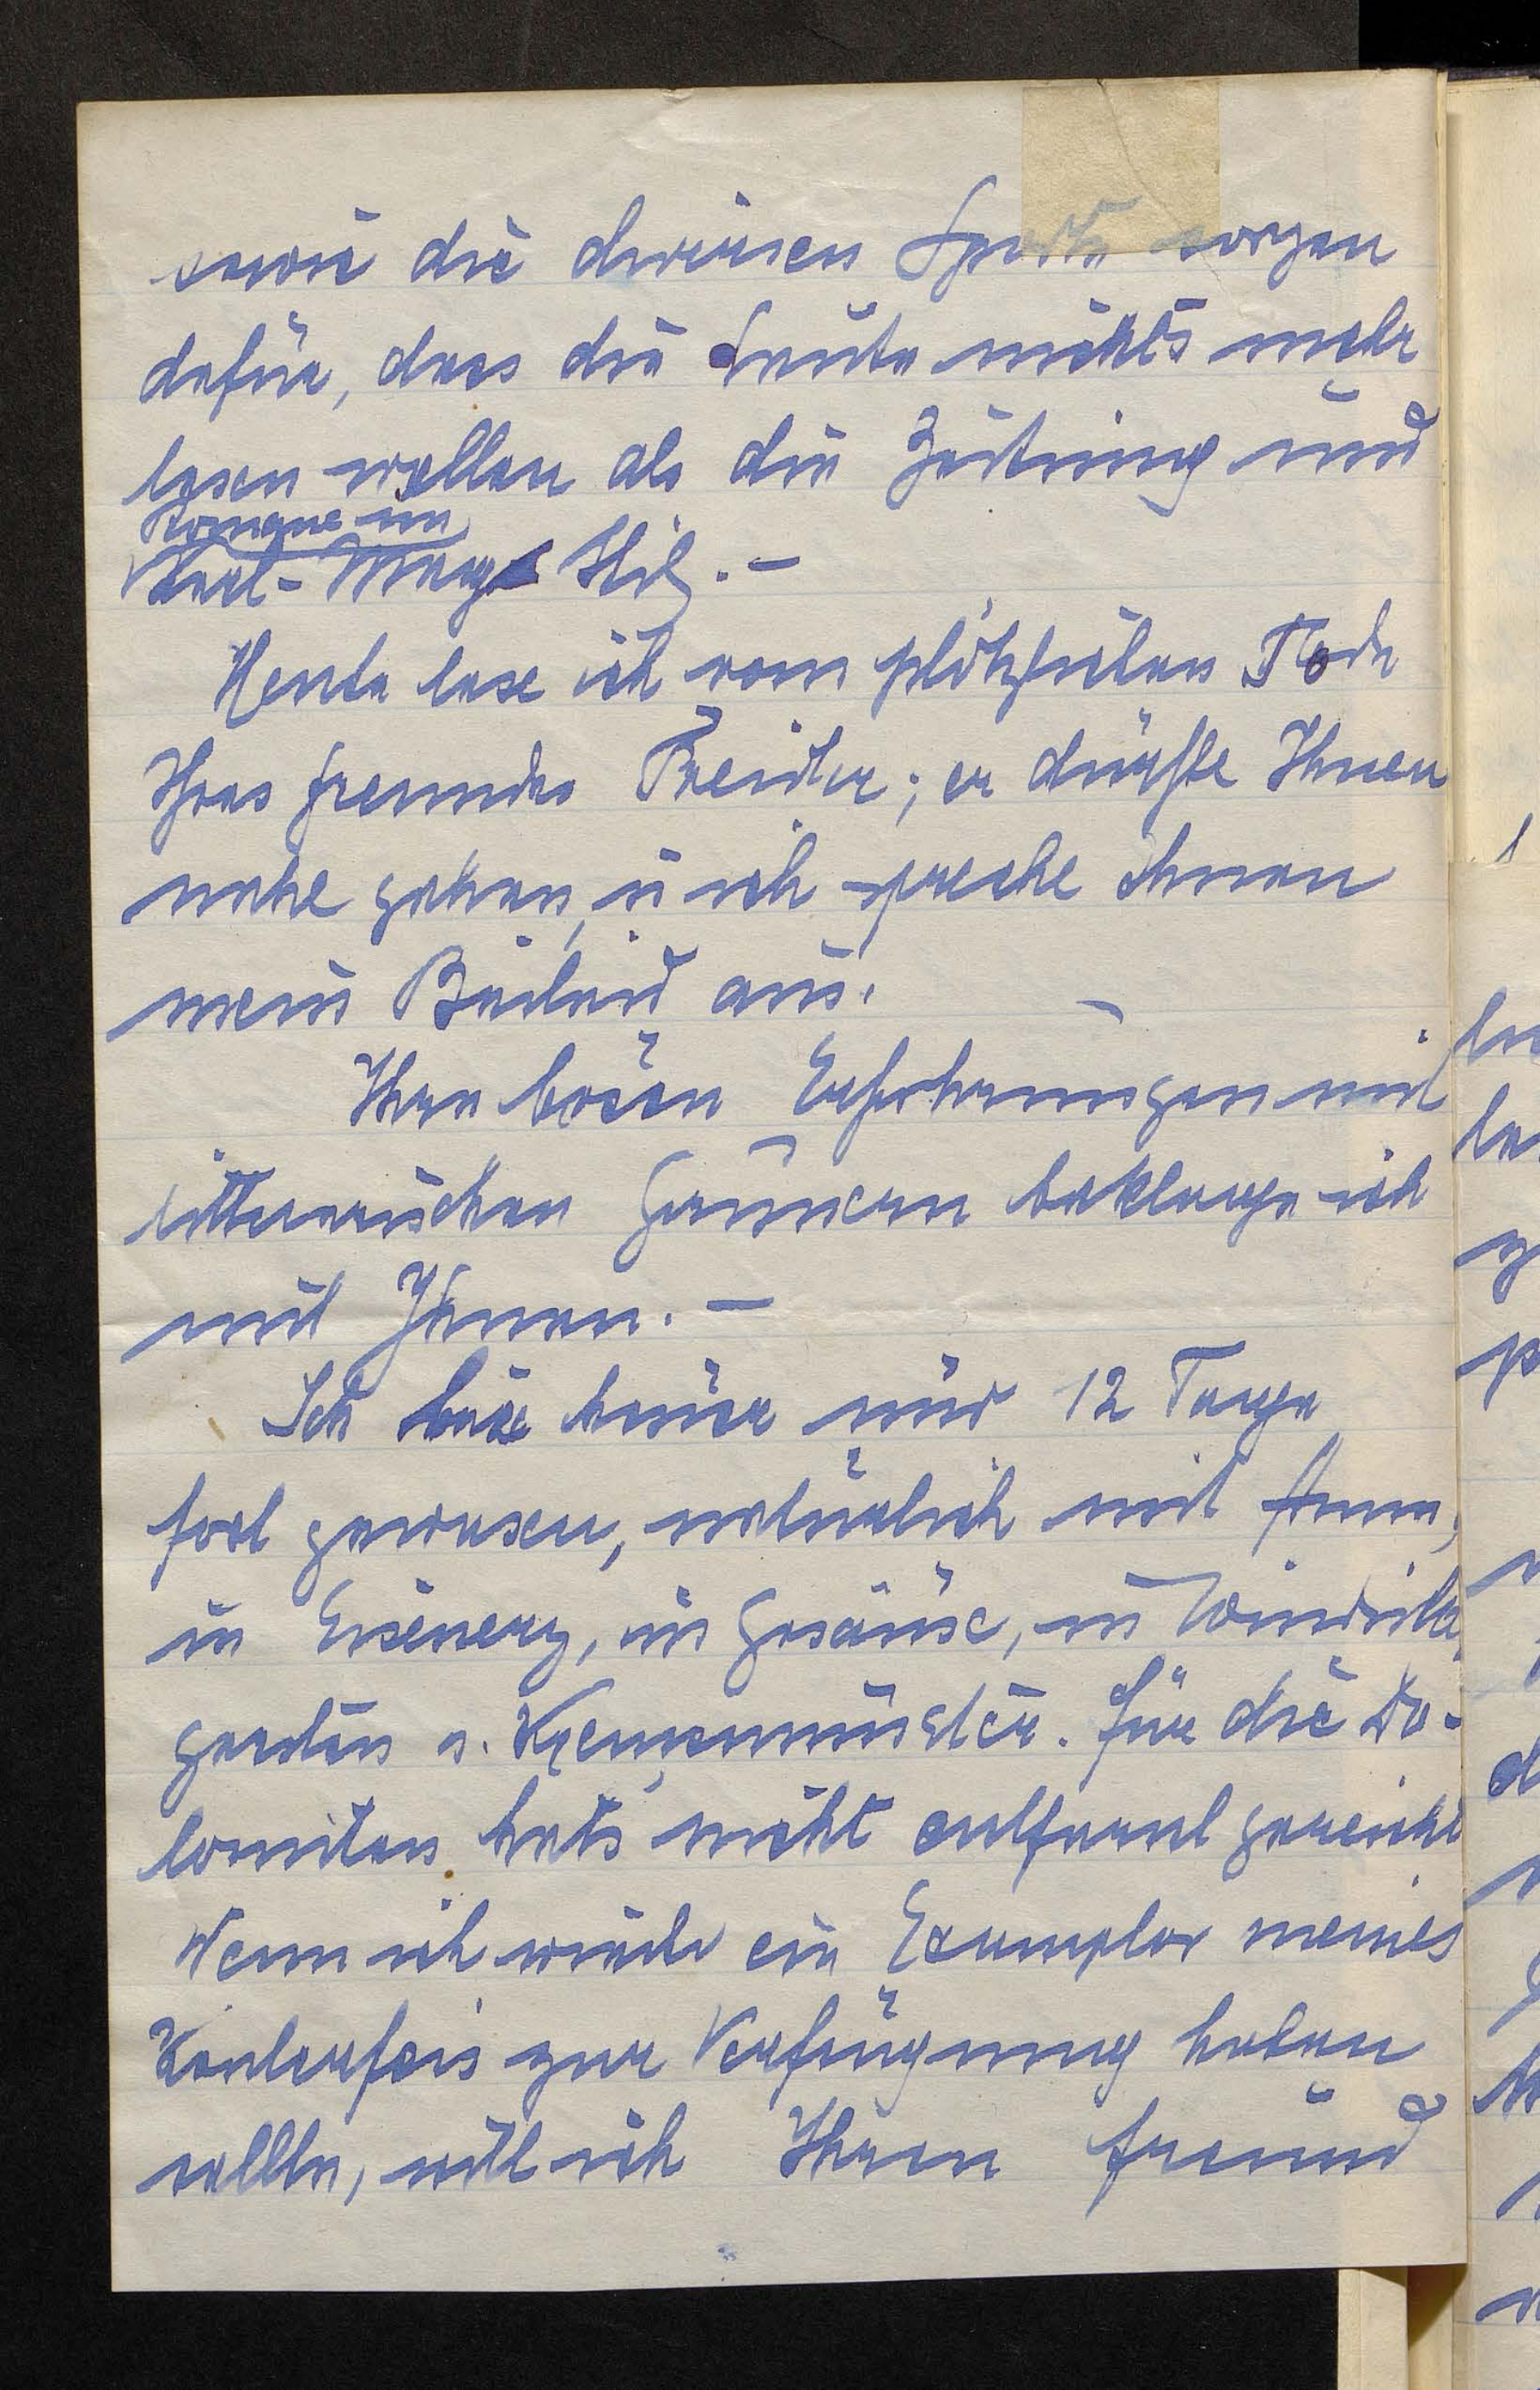 sowie die diversen Sporte sorgen
dafür, dass die Leute nichts mehr
lesen wollen als die Zeitung und
Romane im
Karl-May Stil. –
Heute lese ich vom plötzlichen Tode
Ihres Freundes Breitner; er dürfte Ihnen
nahe gehen, u ich spreche Ihnen
mein Beileid aus. –
Ihre bösen Erfahrungen mit
litterarischen Gaunern beklage ich
mit Ihnen. –
Ich heuer nur 12 Tage
fort gewesen, natürlich mit Anna,
in Eisenerz, im Gesäuse, in Windisch
garsten u. Kremsmünster. Für die Do-
lomiten hats nicht gereicht
Wenn ich wieder ein Exemplar meines
zur Verfügung haben
sollte, will ich Ihren Freund